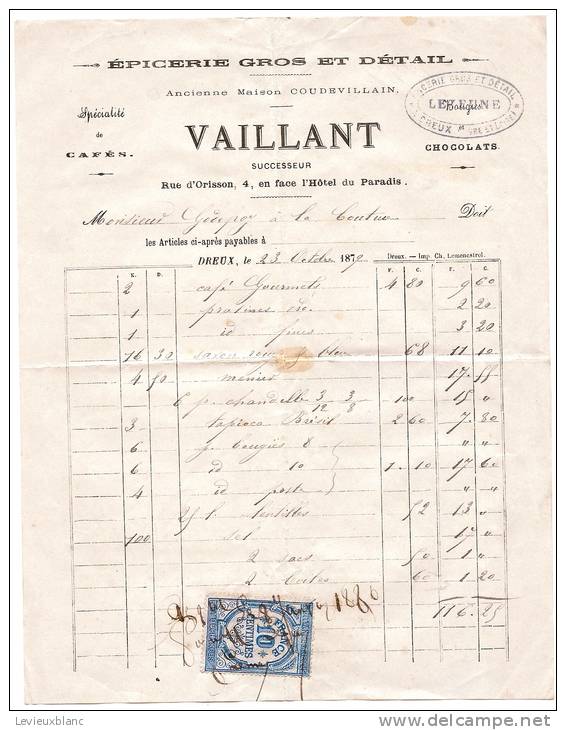 ÉPICERIE GROS ET DÉTAIL
Ancienne Maison COUDEVILLAIN,
ÉPICERIE GROS ET DÉTAIL
LEJEUNE
Bougies
DREUX
Spécialité
de
CAFÉS.
VAILLANT
CHOCOLATS.
SUCCESSEUR
Rue d'Orisson, 4, en face l'Hôtel du Paradis.
Monsieur à la Doit
les Articles ci-après payables à
DREUX, le 23 Octobre 1879 Dreux. — Imp. Ch. Lemenestrel.
K. D. F. C. F. C.
2 café Gourmets 4 80 9 60
1 pralines do 2 20
1 id fines 3 20
16 30 savon bleu 68 11 10
4 50 menier 17 55
6 p. chandelle 3/12 3/8 100 15 "
3 tapioca Brésil 2 60 7 80
6 p. bougies 8 " "
6 id 10 1 10 17 60
4 id poste " "
25 l. lentilles 52 13 "
100 sel 17 "
2 sacs 50 1 "
2 boites 60 1 20
116.25
1880
10
CENTIMES
FRANCE
Levieuxblanc
www.delcampe.net